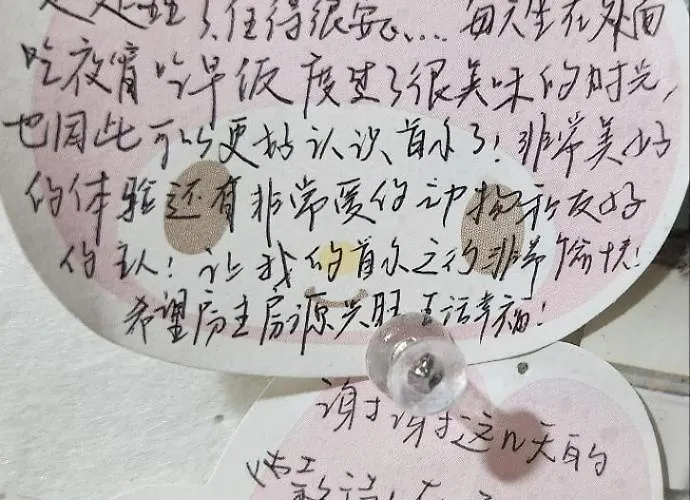 处理了住得很安心...每天坐在外面
吃夜宵吃早饭度过了很美味的时光,
也因此可以更好认识首尔了!非常美好
的体验还有非常爱的动物和友好
的主人!让我的首尔之行非常愉快!
希望房主房源兴旺生活幸福!
谢谢这几天的